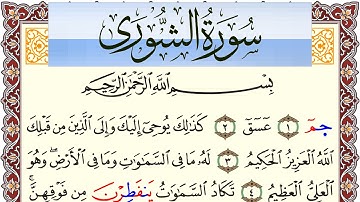 سُورَةُ الشُّورَىٰ
بِسْمِ اللَّهِ الرَّحْمَٰنِ الرَّحِيمِ
حمٓ ١ عٓسٓقٓ ٢ كَذَٰلِكَ يُوحِىٓ إِلَيْكَ وَإِلَى ٱلَّذِينَ مِن قَبْلِكَ
ٱللَّهُ ٱلْعَزِيزُ ٱلْحَكِيمُ ٣ لَهُۥ مَا فِى ٱلسَّمَٰوَٰتِ وَمَا فِى ٱلْأَرْضِ ۖ وَهُوَ
ٱلْعَلِىُّ ٱلْعَظِيمُ ٤ تَكَادُ ٱلسَّمَٰوَٰتُ يَنفَطِرْنَ مِن فَوْقِهِنَّ ۚ